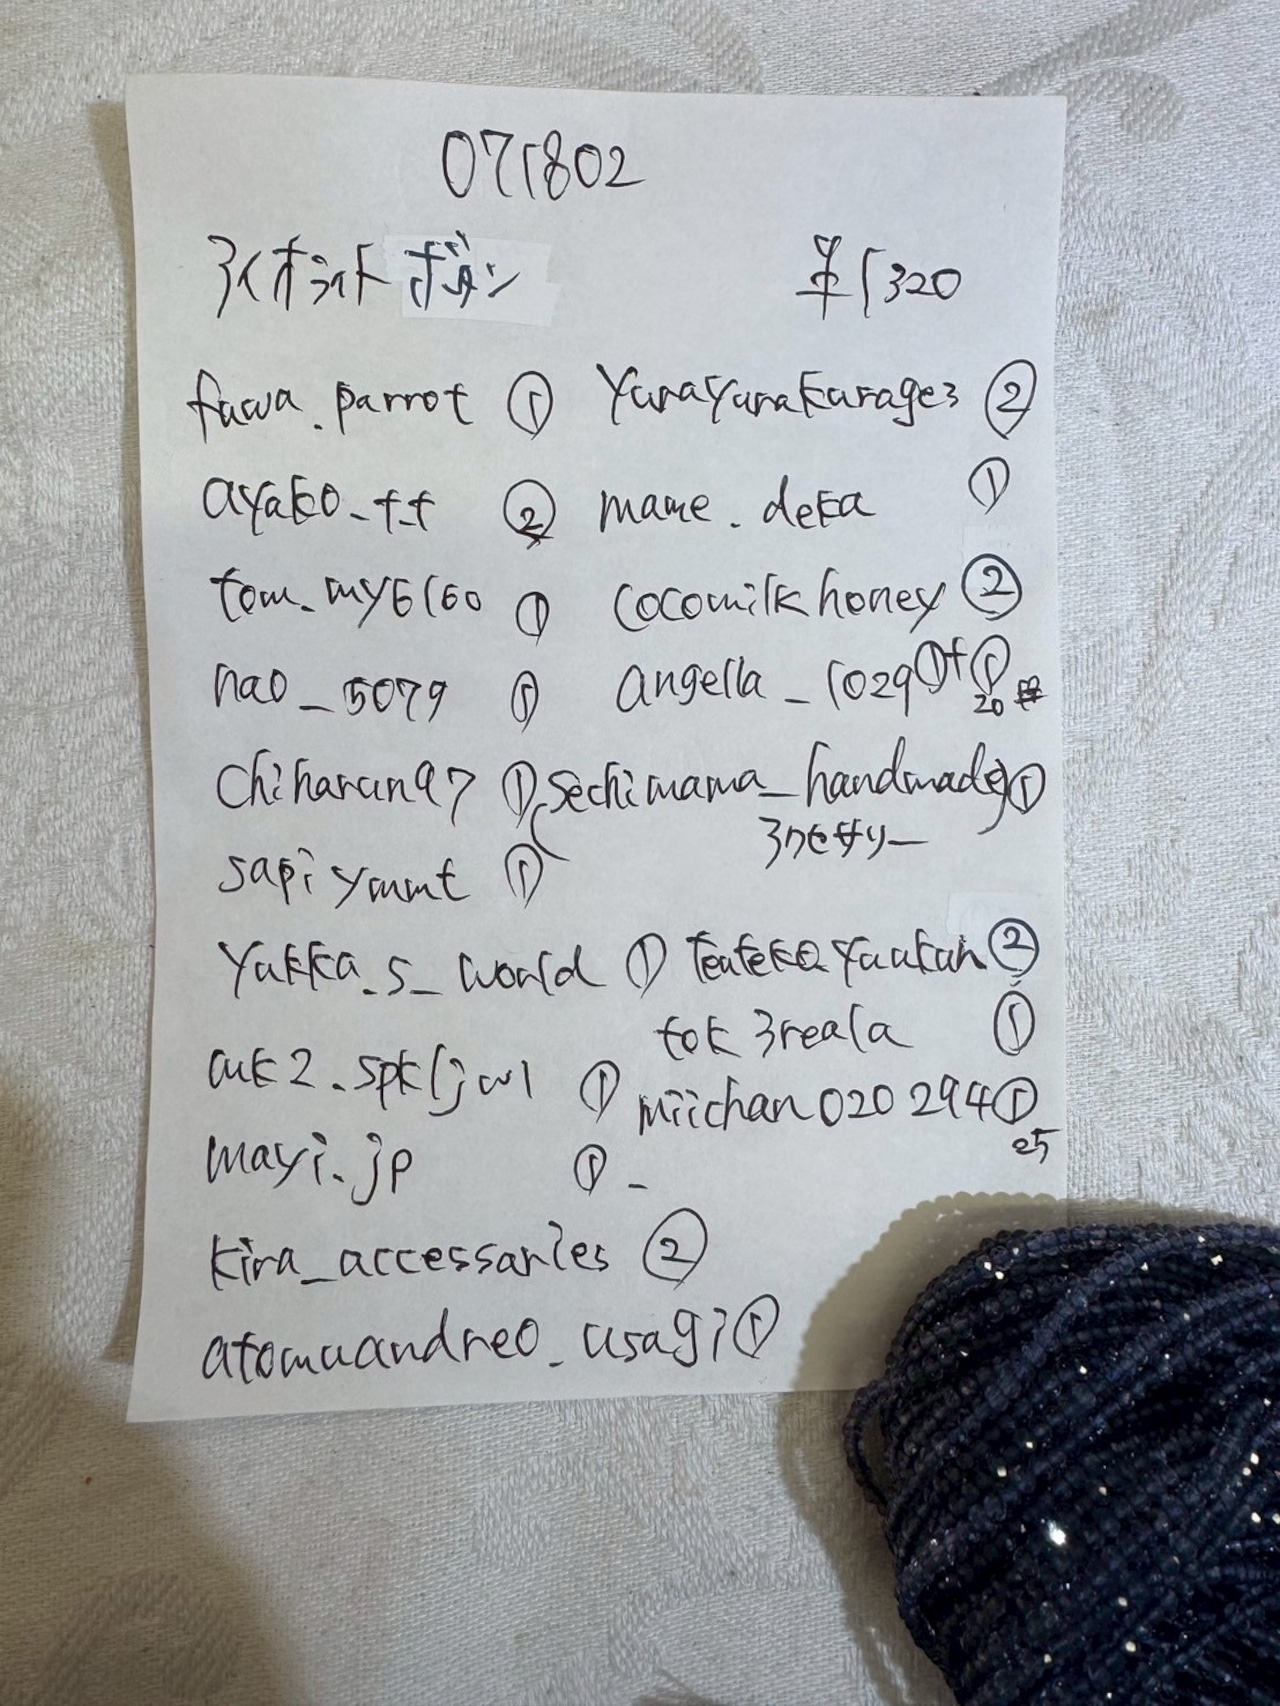 071802
アイオライト ボタン 単1320
fuwa.parrot ① yurayurakurage3 ②
ayako_t.t ② mame.deka ①
tom.my6160 ① cocomilkhoney ②
nao_5079 ① angella_1029 ①+①
20
chiharun97 ① sechimama_handmade ①
アクセサリー
sapiymmt ①
yukka.s_world ① ②
tok3reala ①
auk2.spkljwl ① miichan020294 ①
25
mayi.jp ①
kira_accessaries ②
atomuandreo_usagi ①